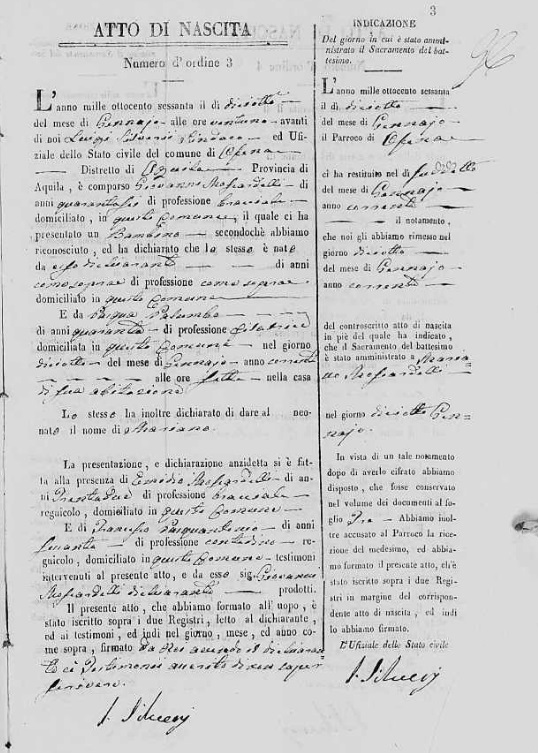 ATTO DI NASCITA
Numero d'ordine 3
L'anno mille ottocento sessanta il dì diciotto
del mese di Gennajo alle ore ventuno avanti
di noi Luigi Silverj Sindaco ed Ufi-
ziale dello Stato civile del comune di Ofena
Distretto di Aquila Provincia di
Aquila, è comparso Giovanni Mosciardelli di
anni quarantasei di professione bracciale
domiciliato, in questo Comune, il quale ci ha
presentato un Bambino secondochè abbiamo
riconosciuto, ed ha dichiarato che lo stesso è nato
da esso dichiarante di anni
come sopra di professione come sopra
domiciliato in questo Comune
E da Pasqua Palumbo
di anni quaranta di professione filatrice
domiciliata in questo Comune nel giorno
diciotto del mese di Gennajo anno corrente
alle ore sette nella casa
di sua abitazione
Lo stesso ha inoltre dichiarato di dare al neo-
nato il nome di Mariano.
La presentazione, e dichiarazione anzidetta si è fat-
ta alla presenza di Emidio Mosciardelli di an-
ni trentadue di professione bracciale
regnicolo, domiciliato in questo Comune
E di Francesco Pasquantonio di anni
di professione contadino re-
gnicolo, domiciliato in questo Comune testimoni
intervenuti al presente atto, e da esso sig. Giovanni
Mosciardelli dichiarante prodotti.
Il presente atto, che abbiamo formato all'uopo, è
stato iscritto sopra i due Registri, letto al dichiarante,
ed ai testimoni, ed indi nel giorno, mese, ed anno co-
me sopra, firmato da Noi avendo il dichiaran-
te e i Testimonii asserito di non saper
scrivere.
L. Silverj
3
INDICAZIONE
Del giorno in cui è stato ammi-
nistrato il Sacramento del bat-
tesimo.
L'anno mille ottocento sessanta
il dì diciotto
del mese di Gennajo
il Parroco di Ofena
ci ha restituito nel dì suddetto
del mese di Gennajo
anno corrente
il notamento,
che noi gli abbiamo rimesso nel
giorno diciotto
del mese di Gennajo
anno corrente
del controscritto atto di nascita
in piè del quale ha indicato,
che il Sacramento del battesimo
è stato amministrato a Maria-
no Mosciardelli
nel giorno diciotto Gen-
najo.
In vista di un tale notamento
dopo di averlo cifrato abbiamo
disposto, che fosse conservato
nel volume dei documenti al fo-
glio Tre Abbiamo inol-
tre accusato al Parroco la rice-
zione del medesimo, ed abbia-
mo formato il presente atto, ch'è
stato iscritto sopra i due Regi-
stri in margine del corrispon-
dente atto di nascita, ed indi
lo abbiamo firmato.
L'Ufiziale dello Stato civile
L. Silverj